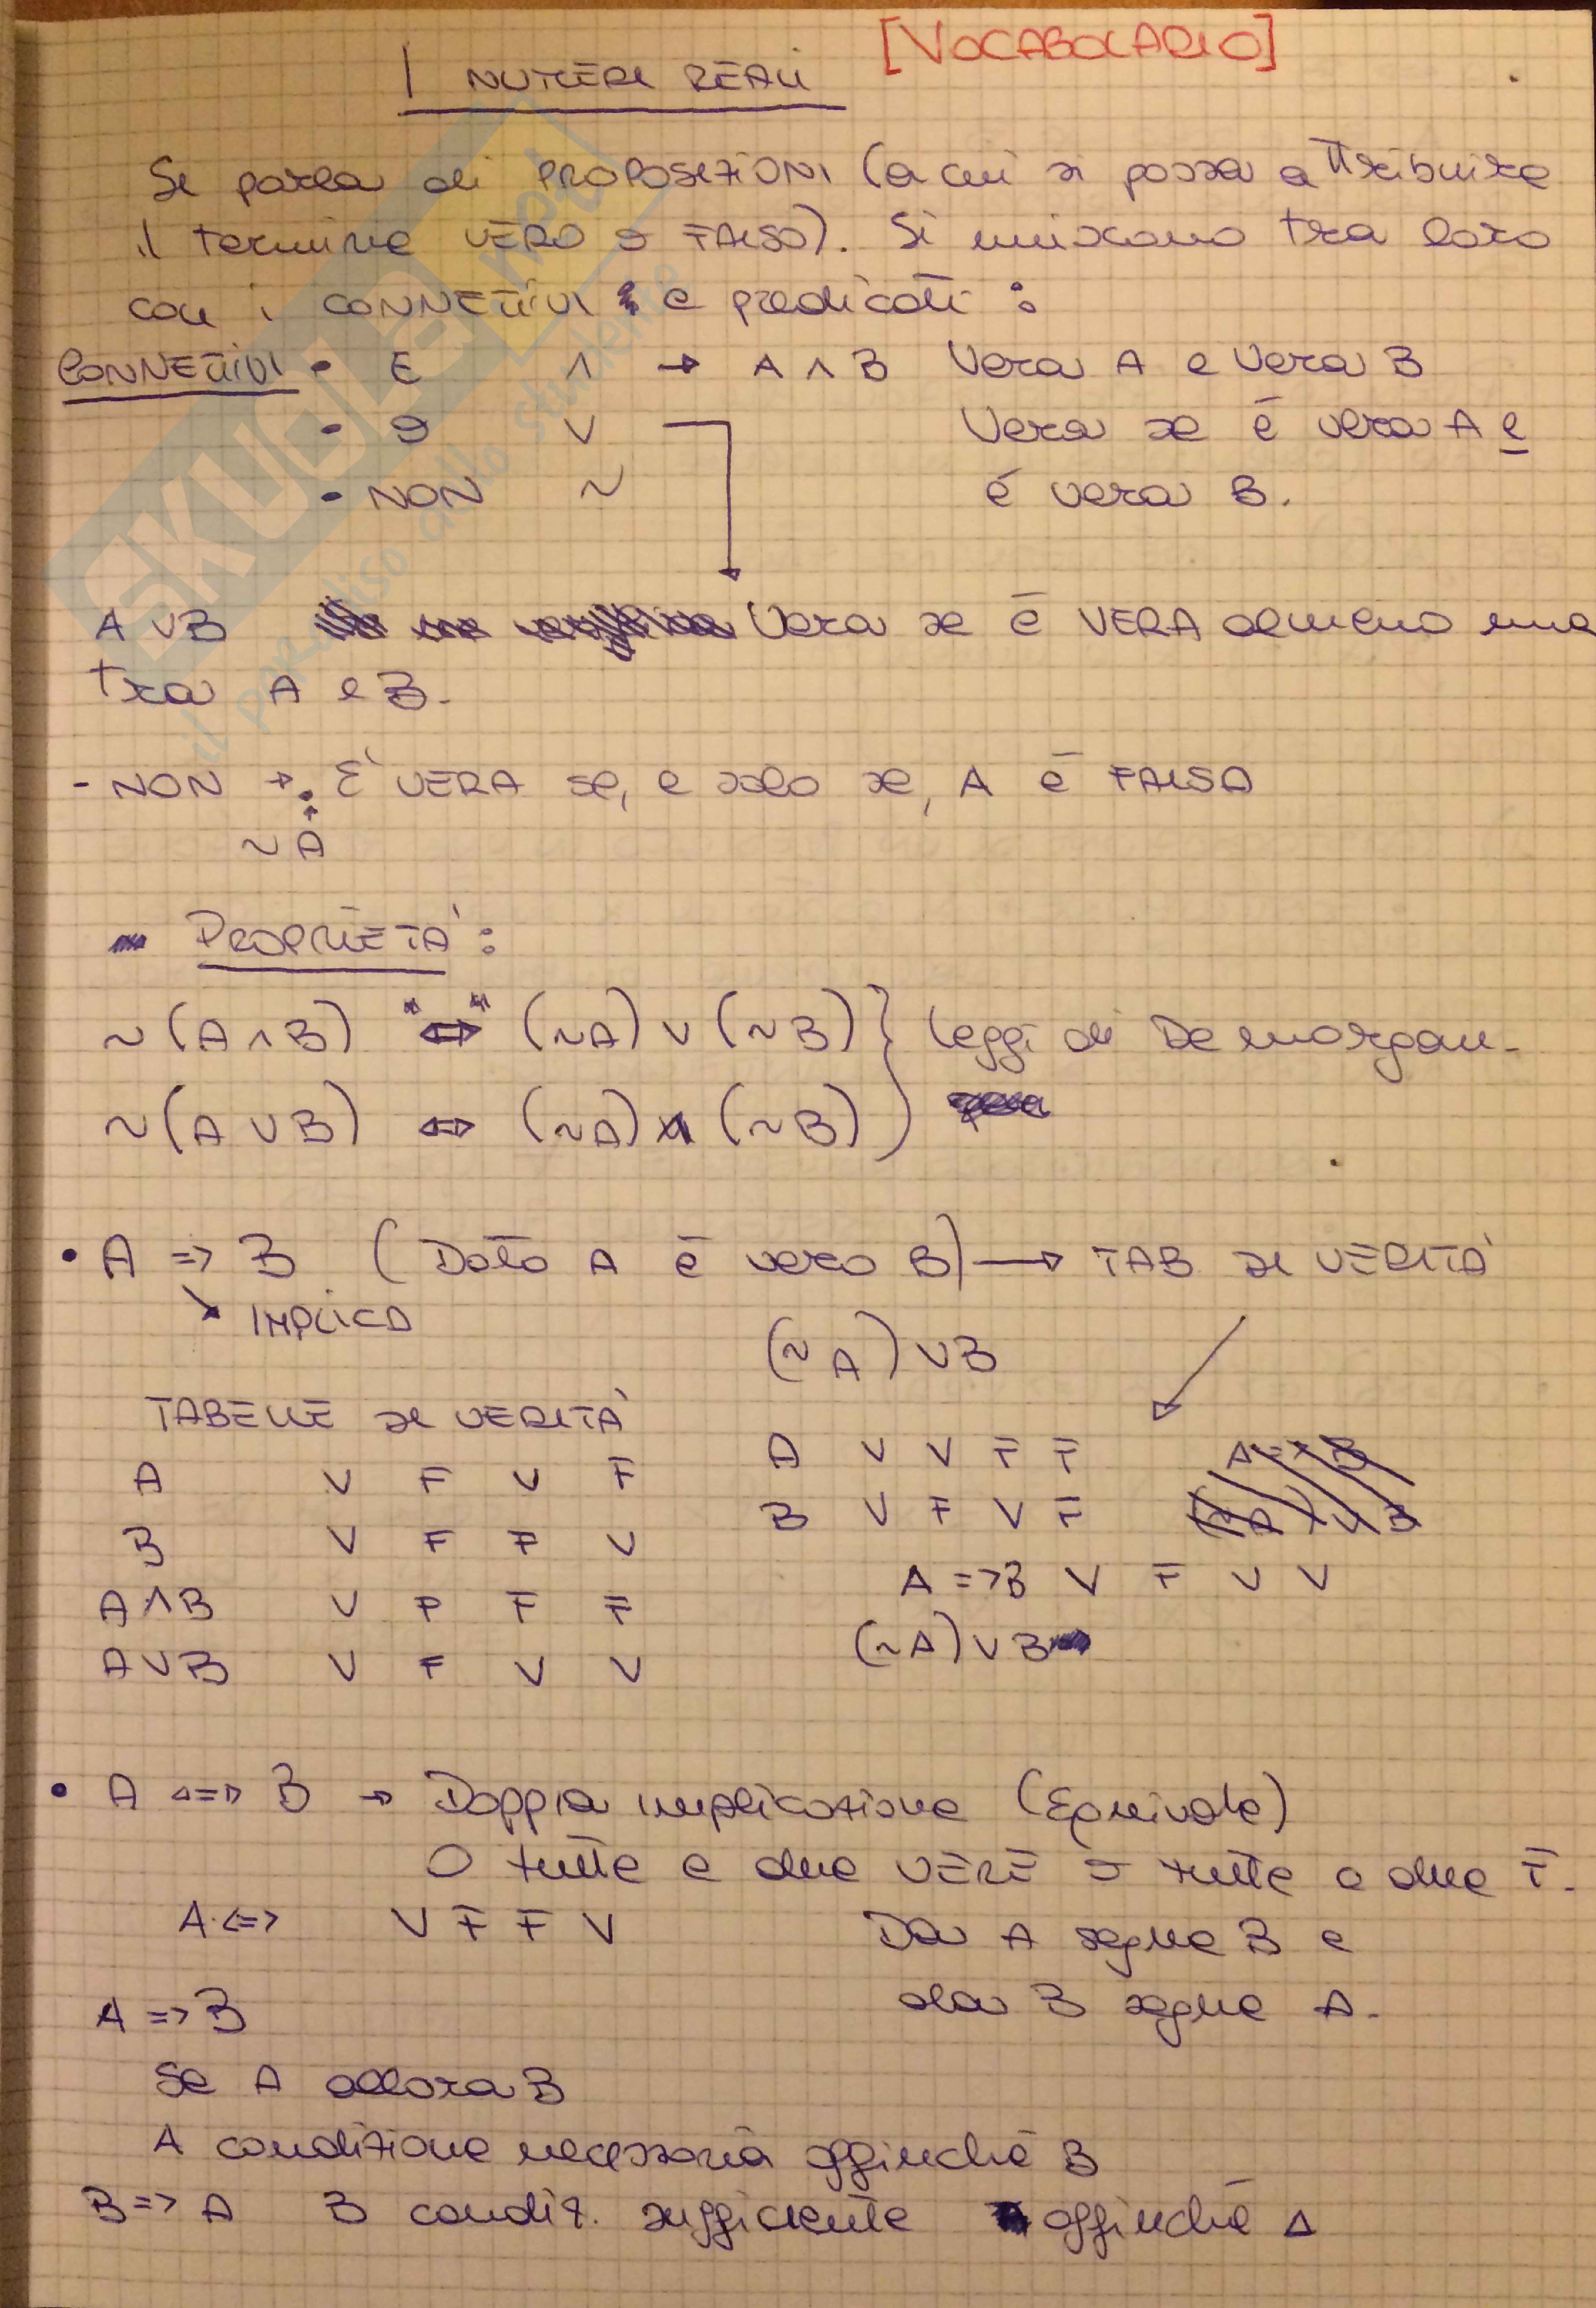 [VOCABOLARIO]
I NUMERI REALI
Si parla di PROPOSIZIONI (a cui si possa attribuire
il termine VERO o FALSO). Si uniscono tra loro
con i CONNETTIVI e predicati :
CONNETTIVI • E ∧ → A ∧ B Vera A e Vera B
- O ∨ Vera se é vera A e
- NON ~ é vera B.
A ∨ B Vera se é VERA almeno una
tra A e B.
- NON → • E' VERA se, e solo se, A é FALSA
~ A
PROPRIETÀ :
~ (A ∧ B) "⇔" (~A) ∨ (~B) } leggi di De morgan.
~ (A ∨ B) ⇔ (~A) ∧ (~B)
• A => B (Dato A é vero B) → TAB di VERITÀ
↘ IMPLICA
(~A) ∨ B
TABELLE di VERITÀ
A V F V F
B V F F V
A ∧ B V F F F
A ∨ B V F V V
A V V F F
B V F V F
A => B V F V V
(~A) ∨ B
• A <=> B → Doppia implicazione (Equivale)
O tutte e due VERE o tutte e due F.
A <=> V F F V Da A segue B e
da B segue A.
A => B
Se A allora B
A condizione necessaria affinché B
B => A B condiz. sufficiente affinché A
SKUOLA.net
il paradiso dello studente